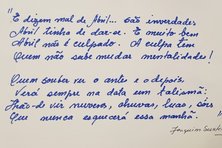 "
E dizem mal de Abril... São inverdades
Abril tinha de dar-se. E muito bem
Abril não é culpado. A culpa tem
Quem não sabe mudar mentalidades!
Quem souber ver o antes e o depois
Verá sempre na data um talismã:
Hão-de vir nuvens, chuvas, luas, sóis
Que nunca esquecerá essa manhã.
Joaquim